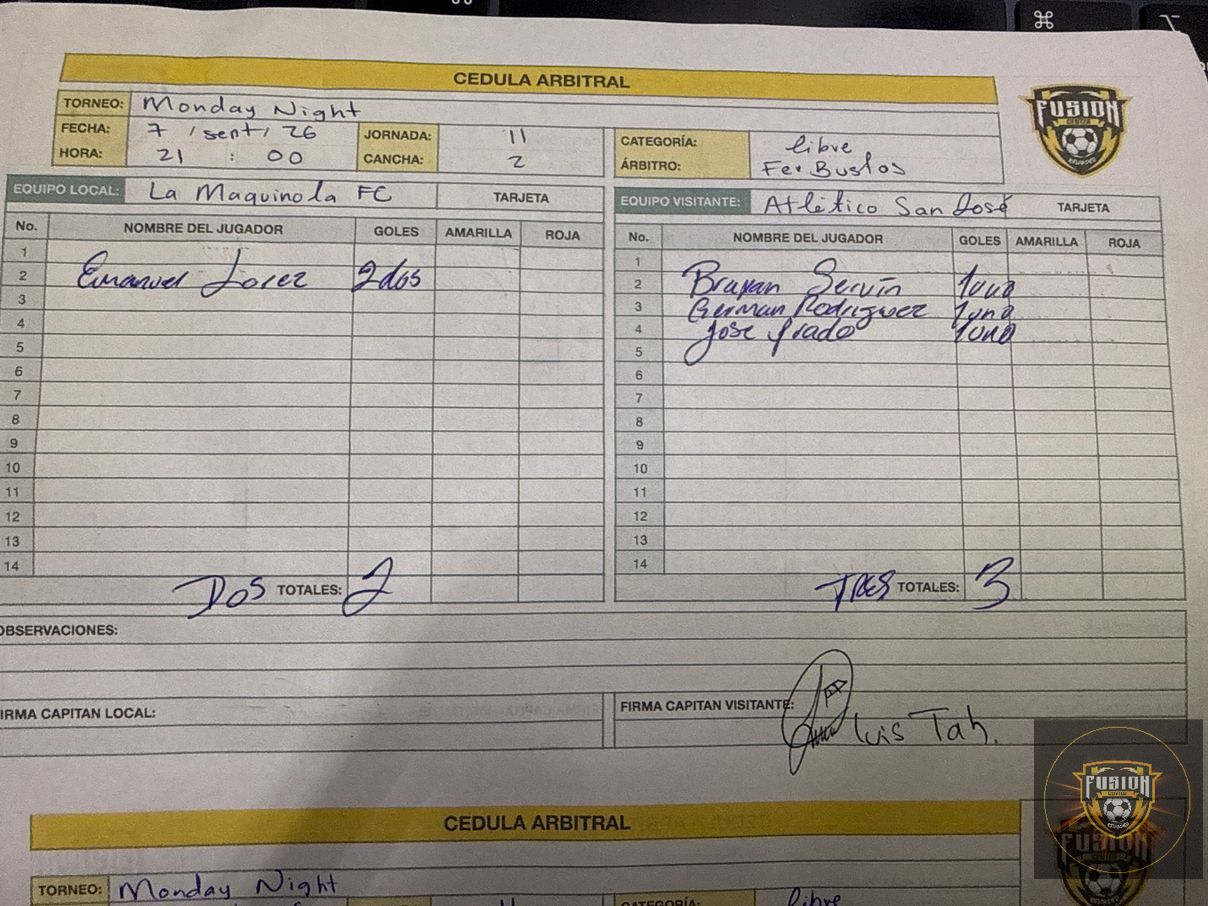 ⌘
CEDULA ARBITRAL
TORNEO: Monday Night
FECHA: 7 / sept / 26 JORNADA: 11
HORA: 21 : 00 CANCHA: 2
CATEGORÍA: libre
ÁRBITRO: Fer Bustos
FUSION
CENTER
EQUIPO LOCAL: La Maquinola FC TARJETA
No. NOMBRE DEL JUGADOR GOLES AMARILLA ROJA
1
2 Emanuel Lopez 2 dos
3
4
5
6
7
8
9
10
11
12
13
14
DOS TOTALES: 2
EQUIPO VISITANTE: Atlético San José TARJETA
No. NOMBRE DEL JUGADOR GOLES AMARILLA ROJA
1
2 Brayan Servín 1 uno
3 German Rodriguez 1 uno
4 Jose Prado 1 uno
5
6
7
8
9
10
11
12
13
14
TRES TOTALES: 3
OBSERVACIONES:
FIRMA CAPITAN LOCAL:
FIRMA CAPITAN VISITANTE: Luis Tah.
CEDULA ARBITRAL
TORNEO: Monday Night
CATEGORÍA: libre
11
FUSION
FUSION
CENTER